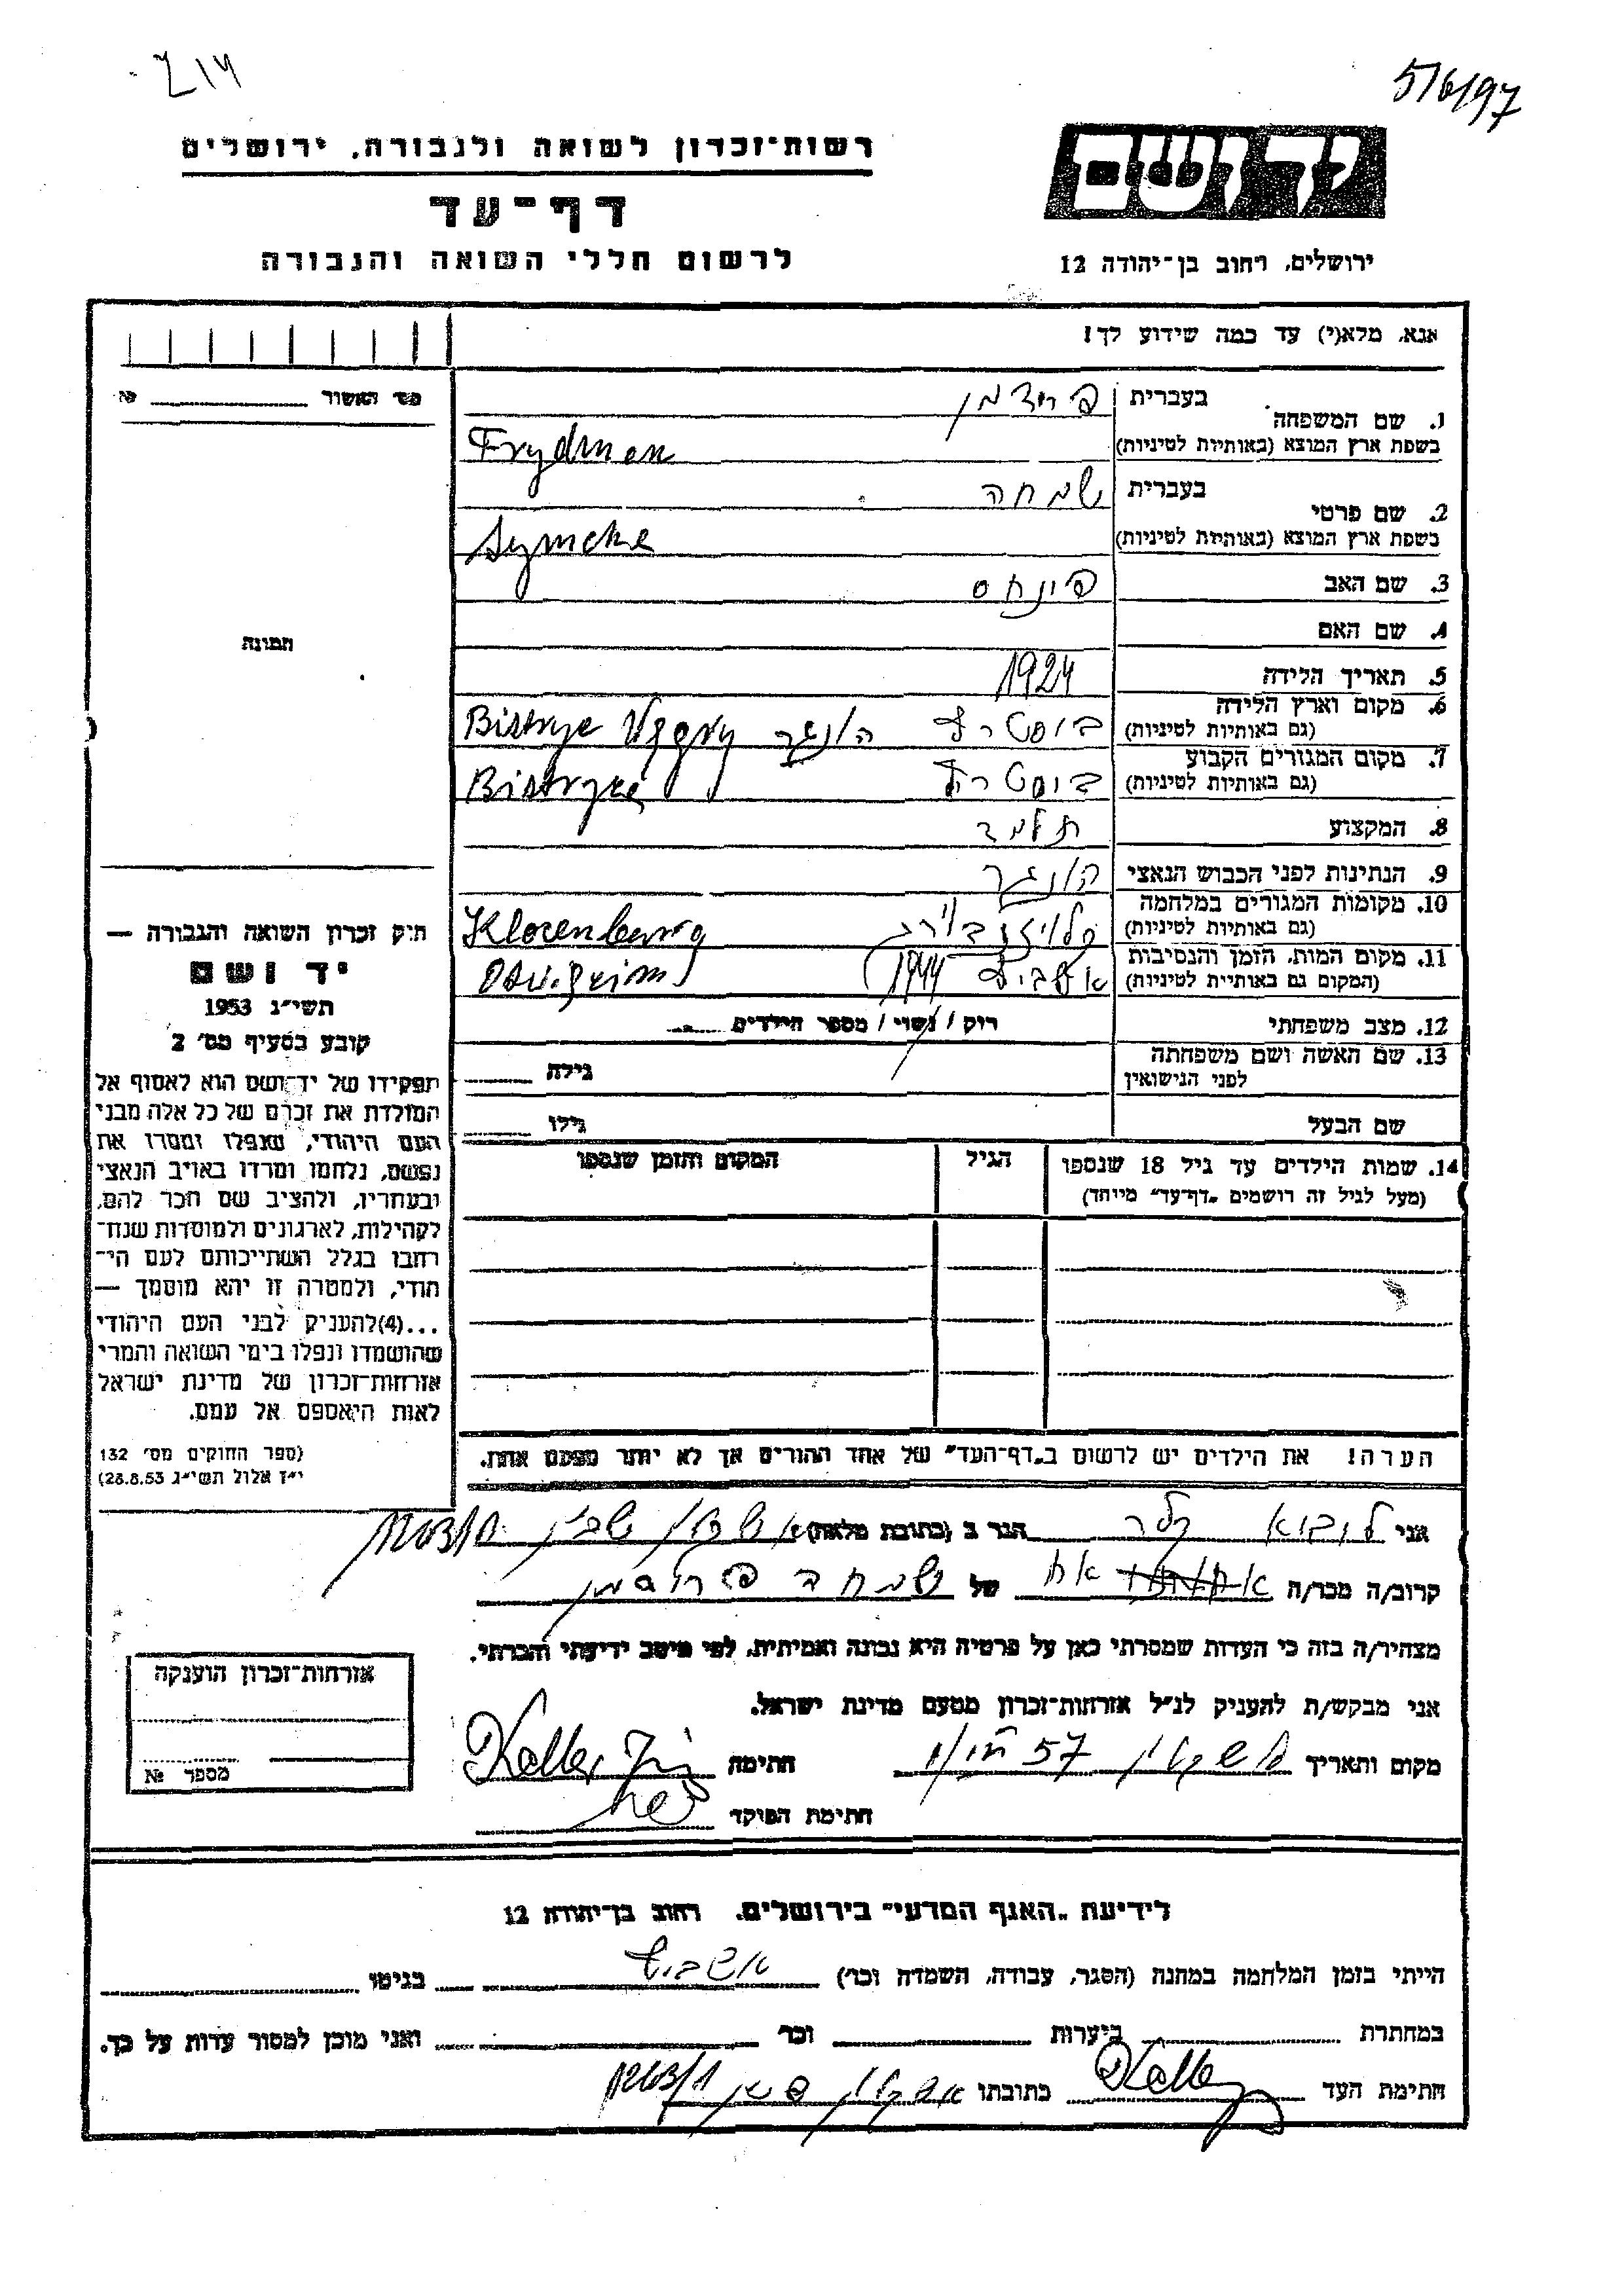 5/6/97
רשות־זכרון לשואה ולגבורה, ירושלים
יד ושם
דף־עד
לרשום חללי השואה והגבורה
ירושלים, רחוב בן־יהודה 12
אנא, מלא(י) עד כמה שידוע לך!
מס׳ האשור № 
1. שם המשפחה
בעברית פרידמן
בשפת ארץ המוצא (באותיות לטיניות) Frydman
2. שם פרטי
בעברית שמחה
בשפת ארץ המוצא (באותיות לטיניות) Symche
3. שם האב פינחס
4. שם האם
תמונה
5. תאריך הלידה 1924
6. מקום וארץ הלידה
(גם באותיות לטיניות) הונגר
7. מקום המגורים הקבוע
(גם באותיות לטיניות)
8. המקצוע תלמיד
9. הנתינות לפני הכבוש הנאצי הונגר
10. מקומות המגורים במלחמה
(גם באותיות לטיניות) קלויזנבורג Klozenburg
11. מקום המות, הזמן והנסיבות
(המקום גם באותיות לטיניות) 1944
12. מצב משפחתי רוק / נשוי / מספר הילדים
13. שם האשה ושם משפחתה
לפני הנישואין גילה
שם הבעל גילו
14. שמות הילדים עד גיל 18 שנספו הגיל המקום והזמן שנספו
(מעל לגיל זה רושמים „דף־עד" מיוחד)
חוק זכרון השואה והגבורה —
יד ושם
תשי״ג 1953
קובע בסעיף מס׳ 2
תפקידו של יד־ושם הוא לאסוף אל
המולדת את זכרם של כל אלה מבני
העם היהודי, שנפלו ומסרו את
נפשם, נלחמו ומרדו באויב הנאצי
ובעוזריו, ולהציב שם וזכר להם,
לקהילות, לארגונים ולמוסדות שנח־
רבו בגלל השתייכותם לעם הי־
הודי, ולמטרה זו יהא מוסמך —
...(4)להעניק לבני העם היהודי
שהושמדו ונפלו בימי השואה והמרי
אזרחות־זכרון של מדינת ישראל
לאות היאספם אל עמם.
(ספר החוקים מס׳ 132
י״ז אלול תשי״ג 28.8.53)
הערה! את הילדים יש לרשום ב„דף־העד" של אחד ההורים אך לא יותר מפעם אחת.
אני ליובא קלר הגר ב (כתובת מלאה) אשקלון
קרוב/ה מכר/ה אח של שמחה פרידמן
מצהיר/ה בזה כי העדות שמסרתי כאן על פרטיה היא נכונה ואמיתית, לפי מיטב ידיעתי והכרתי.
אני מבקש/ת להעניק לנ״ל אזרחות־זכרון מטעם מדינת ישראל.
מקום ותאריך אשקלון חתימה Keller
חתימת הפוקד
אזרחות־זכרון הוענקה
מספר №
לידיעת „האגף המדעי" בירושלים. רחוב בן־יהודה 12
הייתי בזמן המלחמה במחנה (הסגר, עבודה, השמדה וכו׳) אושביץ בגיטו
במחתרת ביערות וכו׳ ואני מוכן למסור עדות על כך.
חתימת העד Keller כתובתו אשקלון